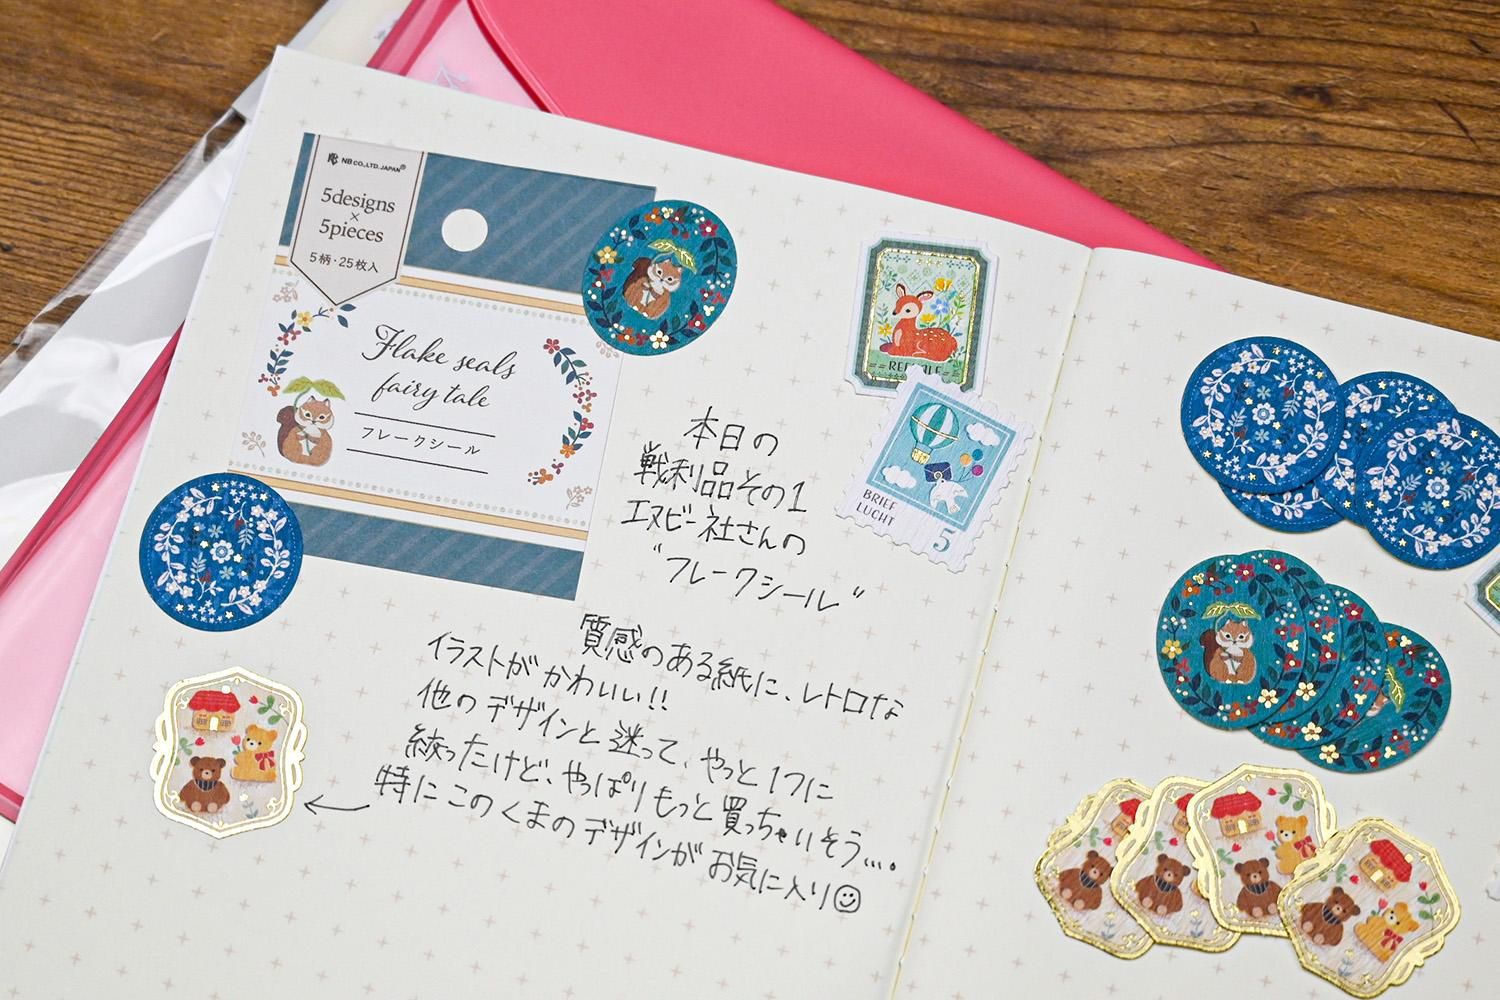 NB CO.,LTD. JAPAN®
5designs
×
5pieces
5柄・25枚入
Flake seals
fairy tale
フレークシール
本日の
戦利品その1
エヌビー社さんの
"フレークシール"
質感のある紙に、レトロな
イラストがかわいい!!
他のデザインと迷って、やっと1つに
絞ったけど、やっぱりもっと買っちゃいそう….
特にこのくまのデザインがお気に入り☺
BRIEF
LUCHT
5